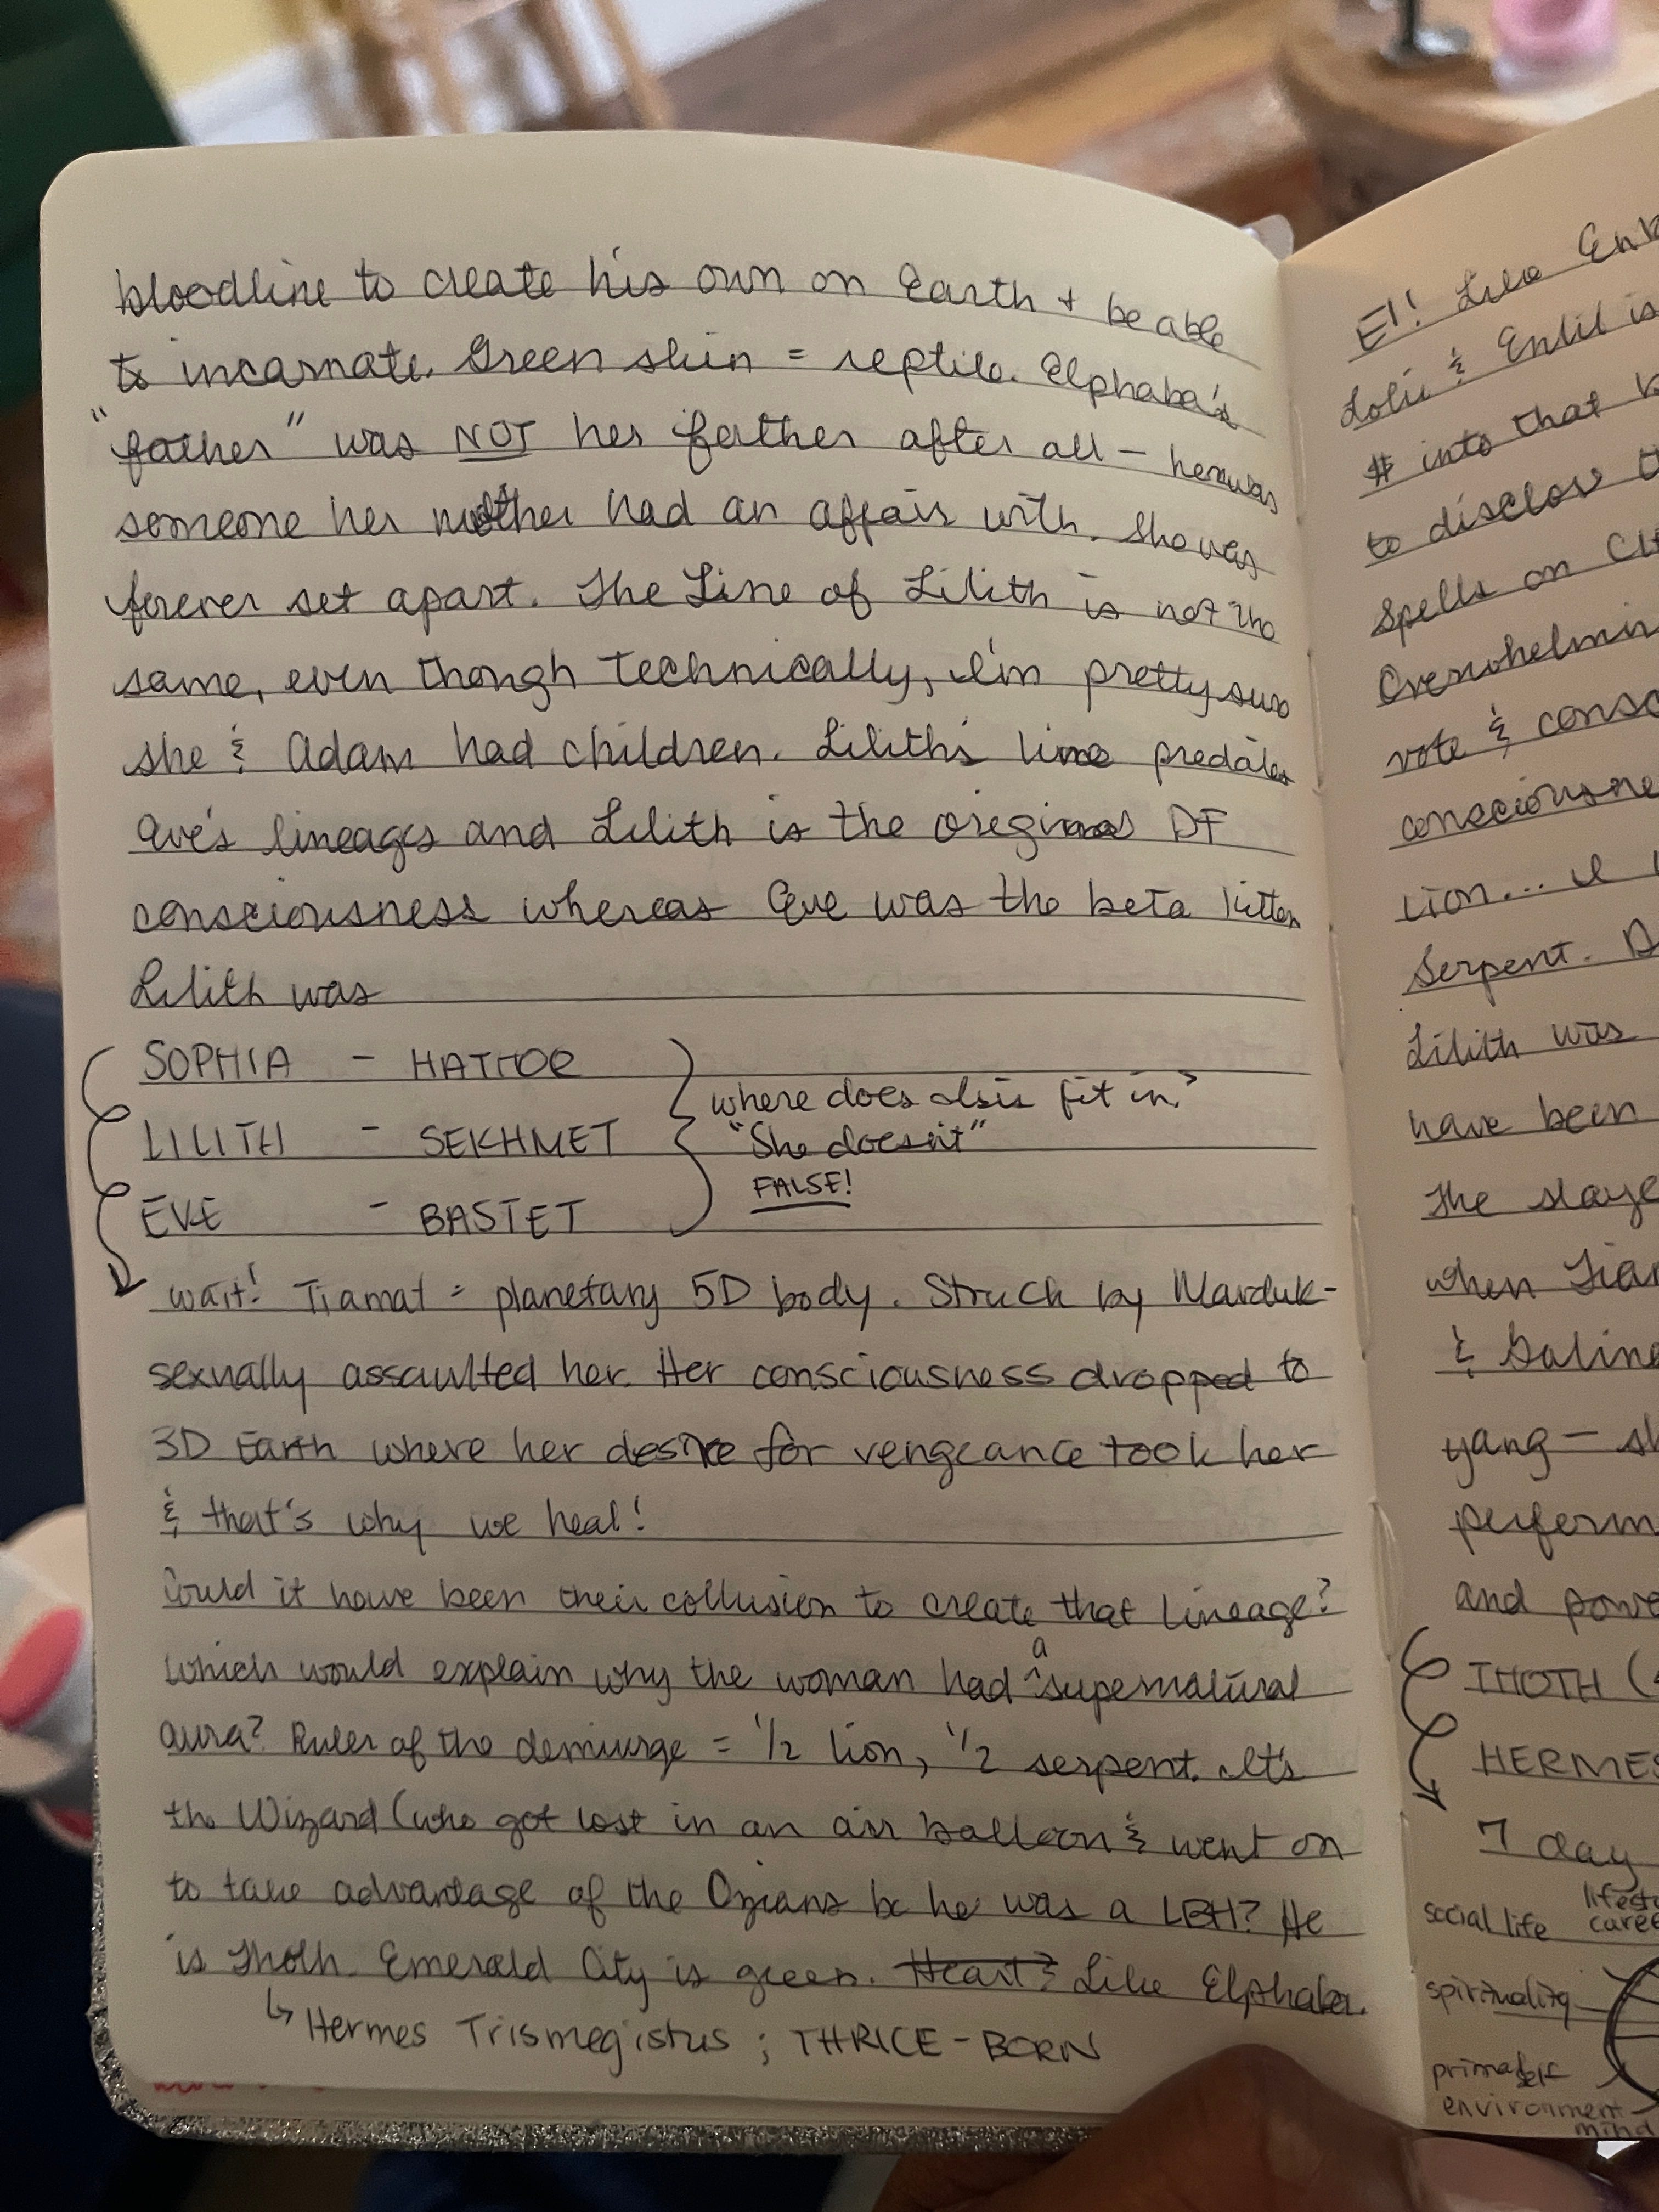 bloodline to create his own on Earth + be able
to incarnate. Green skin = reptile. Elphaba's
"father" was NOT her father after all – her was
someone her mother had an affair with. She was
forever set apart. The Line of Lilith is not the
same, even though technically, I'm pretty sure
she & Adam had children. Lilith's line predates
Eve's lineages and Lilith is the original DF
consciousness whereas Eve was the beta kitten
Lilith was
SOPHIA - HATHOR
LILITH - SEKHMET
EVE - BASTET
where does Isis fit in?
"She doesn't"
FALSE!
wait! Tiamat = planetary 5D body. Struck by Marduk-
sexually assaulted her. Her consciousness dropped to
3D Earth where her desire for vengeance took her
& that's why we heal!
Could it have been their collusion to create that lineage?
Which would explain why the woman had a supernatural
aura? Ruler of the demiurge = 1/2 lion, 1/2 serpent. It's
the Wizard (who got lost in an air balloon & went on
to take advantage of the Ozians bc he was a LBH? He
is Thoth. Emerald City is green. Heart? Like Elphaba.
↳ Hermes Trismegistus ; THRICE-BORN
El! Like
& Enlil is
# into that
to disclose
Spells on
vote &
lion... I
Serpent.
Lilith was
have been
the
when
&
yang –
perform
and
THOTH (
HERMES
7 day
social life
spirituality
environment
mind